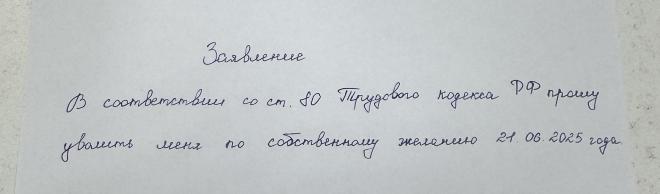 Заявление
В соответствии со ст. 80 Трудового кодекса РФ прошу
уволить меня по собственному желанию 21.06.2025 года.